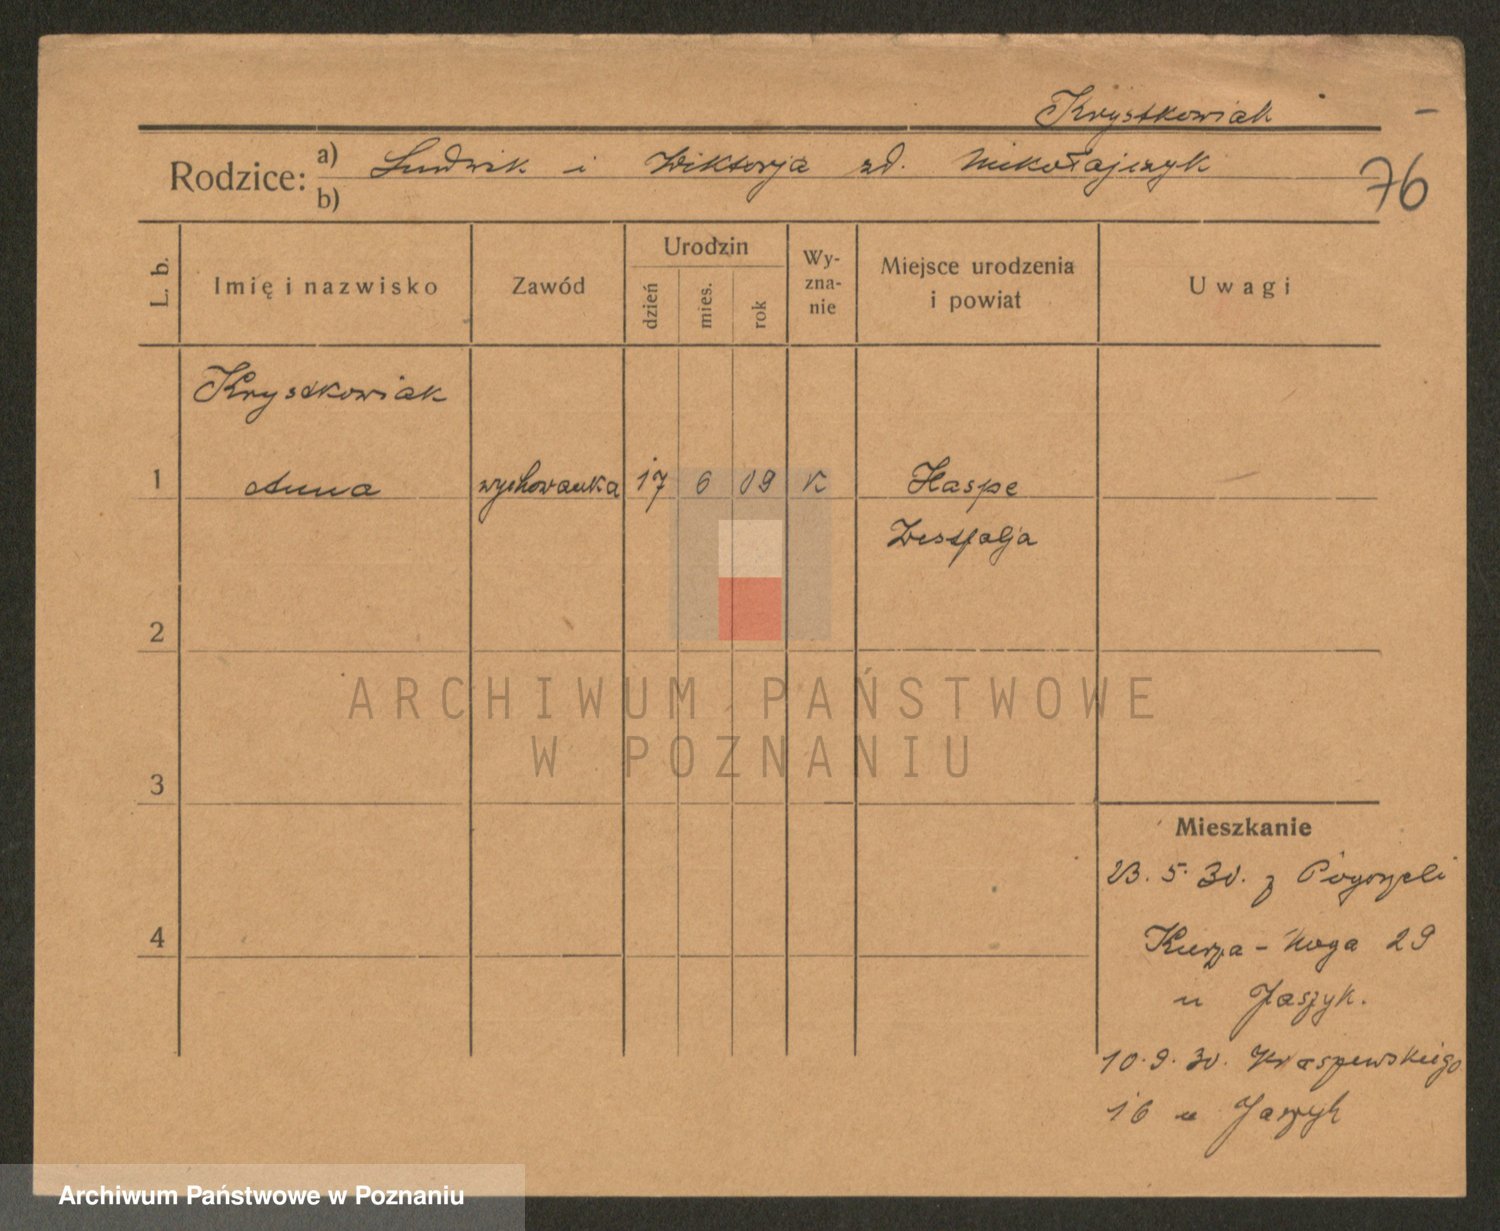 Krystkowiak
Rodzice: a) Ludwik i Wiktorja zd. Mikołajczyk
b)
76
L. b. Imię i nazwisko Zawód Urodzin dzień mies. rok Wy-zna-nie Miejsce urodzenia i powiat Uwagi
Krystkowiak
1 Anna wychowanka 17 6 09 K Haspe
Westfalja
2
ARCHIWUM PAŃSTWOWE
W POZNANIU
3
Mieszkanie
23. 5. 30. z Pogorzeli
4
Kurza-Noga 29
u Jaszyk.
10. 9. 30. Kraszewskiego
16 u Jaszyk
Archiwum Państwowe w Poznaniu